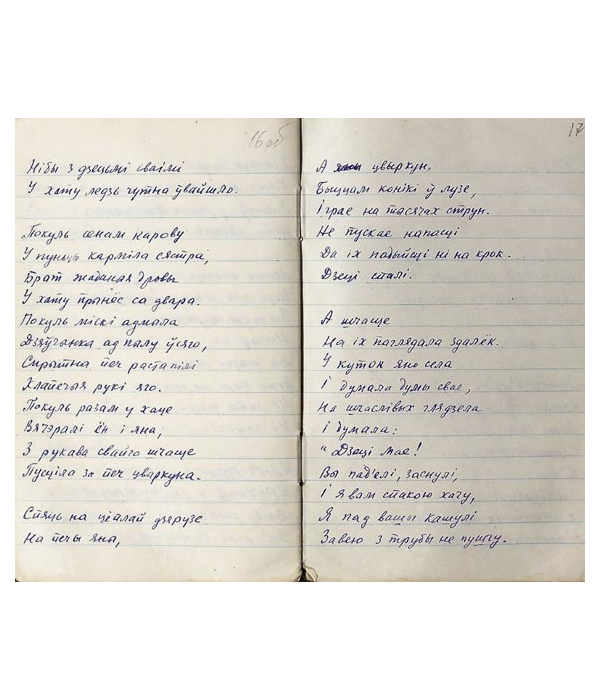 16 об
Нібы з дзецьмі сваімі
У хату ледзь чутна ўвайшло.
Покуль сенам карову
У пуньцы карміла сястра,
Брат жаданыя дровы
У хату прынёс са двара.
Покуль міскі адмыла
Дзяўчынка ад пылу ўсяго,
Спрытна печ растапілі
Хлапечыя рукі яго.
Покуль разам у хаце
Вячэралі ён і яна,
З рукава свайго шчасце
Пусціла за печ цвыркуна.
Спяць на цёплай дзярузе
На печы яны,
17
А цвыркун,
Быццам конікі ў лузе,
Іграе на тысячах струн.
Не пускае напасці
Да іх падыйсці ні на крок.
Дзеці спалі.
А шчасце
На іх паглядала здалёк.
У куток яно села
І думала думы свае,
На шчаслівых глядзела
І думала:
"Дзеці мае!
Вы пад'елі, заснулі,
І я вам спакою хачу,
Я пад вашы кашулі
Завею з трубы не пушчу.